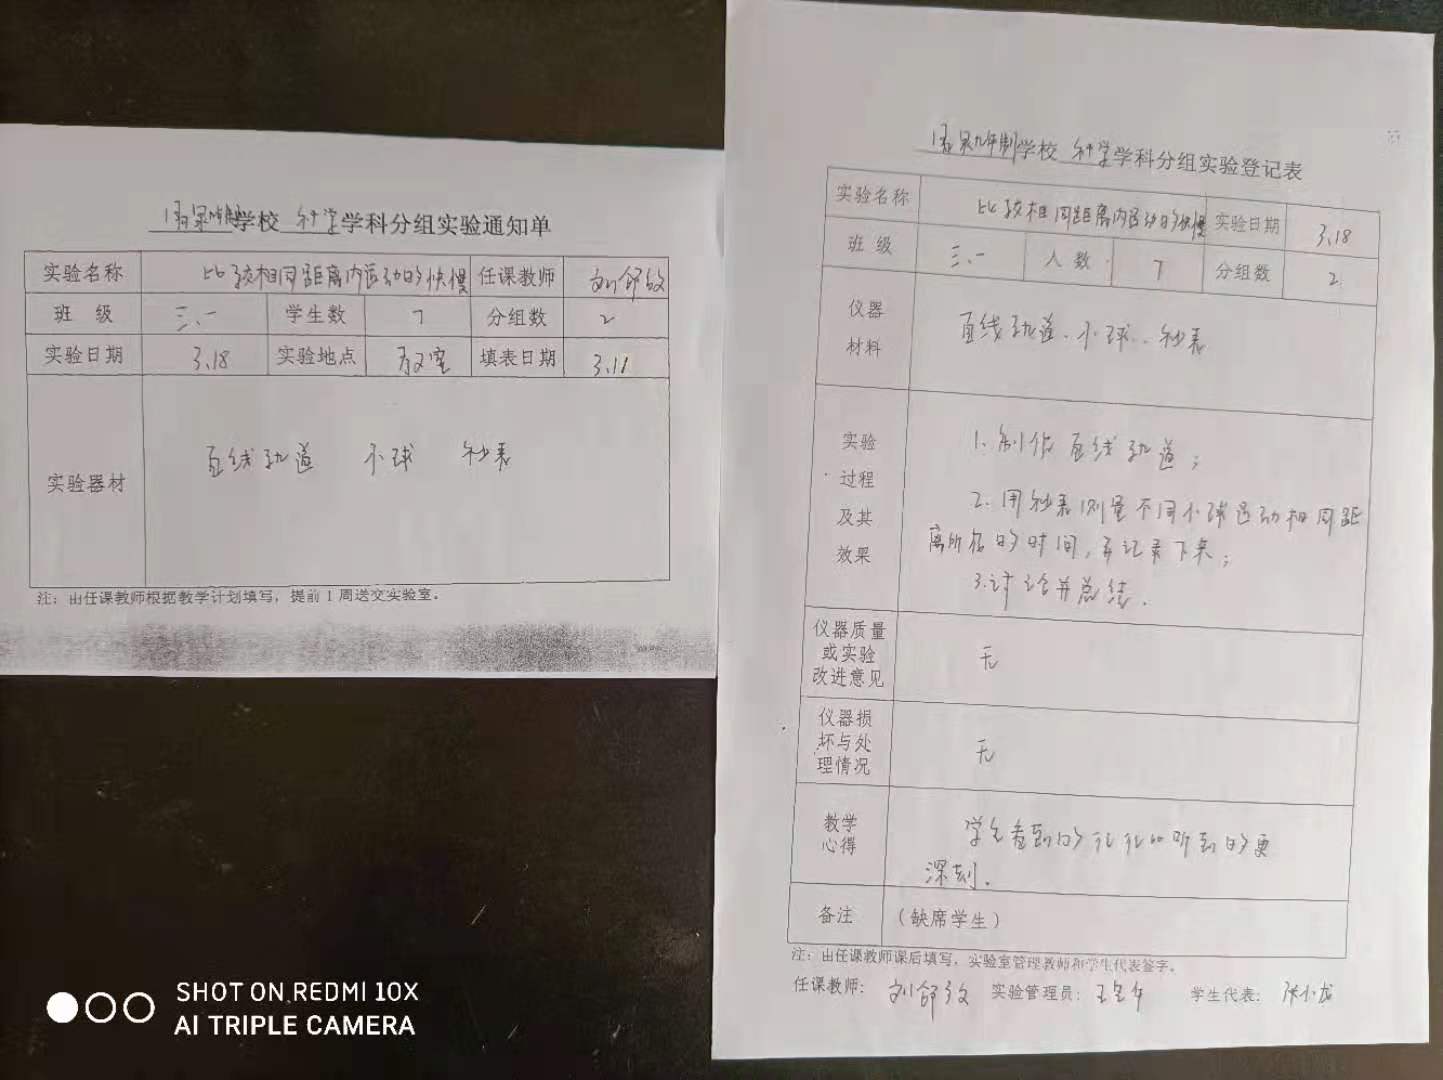 学校 科学学科分组实验通知单
实验名称 比较相同距离内运动的快慢 任课教师 刘舒
班 级 三.一 学生数 7 分组数 2
实验日期 3.18 实验地点 教室 填表日期 3.11
实验器材 直线轨道 小球 秒表
注：由任课教师根据教学计划填写，提前1周送交实验室。
泉九年制学校 科学学科分组实验登记表
实验名称 比较相同距离内运动的快慢 实验日期 3.18
班 级 三.一 人 数 7 分组数 2
仪器
材料
直线轨道、小球、秒表
实验
过程
及其
效果
1、制作直线轨道；
2、用秒表测量不同小球运动相同距
离所的时间，并记录下来；
3.讨论并总结.
仪器质量
或实验
改进意见
无
仪器损
坏与处
理情况
无
教学
心得
学生看到的往往比听到的更
深刻.
备注 （缺席学生）
注：由任课教师课后填写，实验室管理教师和学生代表签字。
任课教师： 刘舒 实验管理员： 王 学生代表： 张小龙
SHOT ON REDMI 10X
AI TRIPLE CAMERA